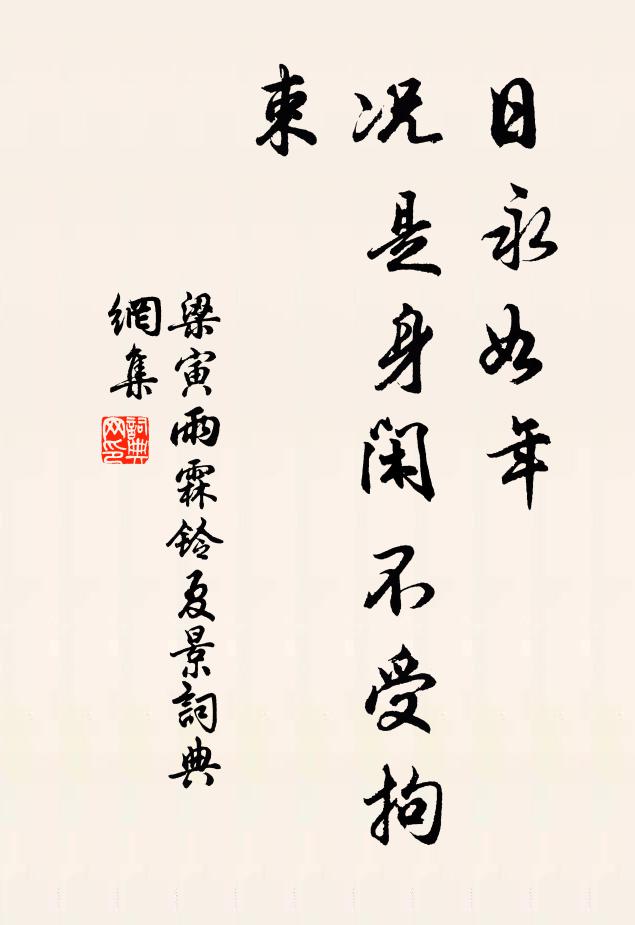 日永如年
况是身閑不受拘
束
梁寅雨霖鈴夏景詞典
網集
詞典
网印